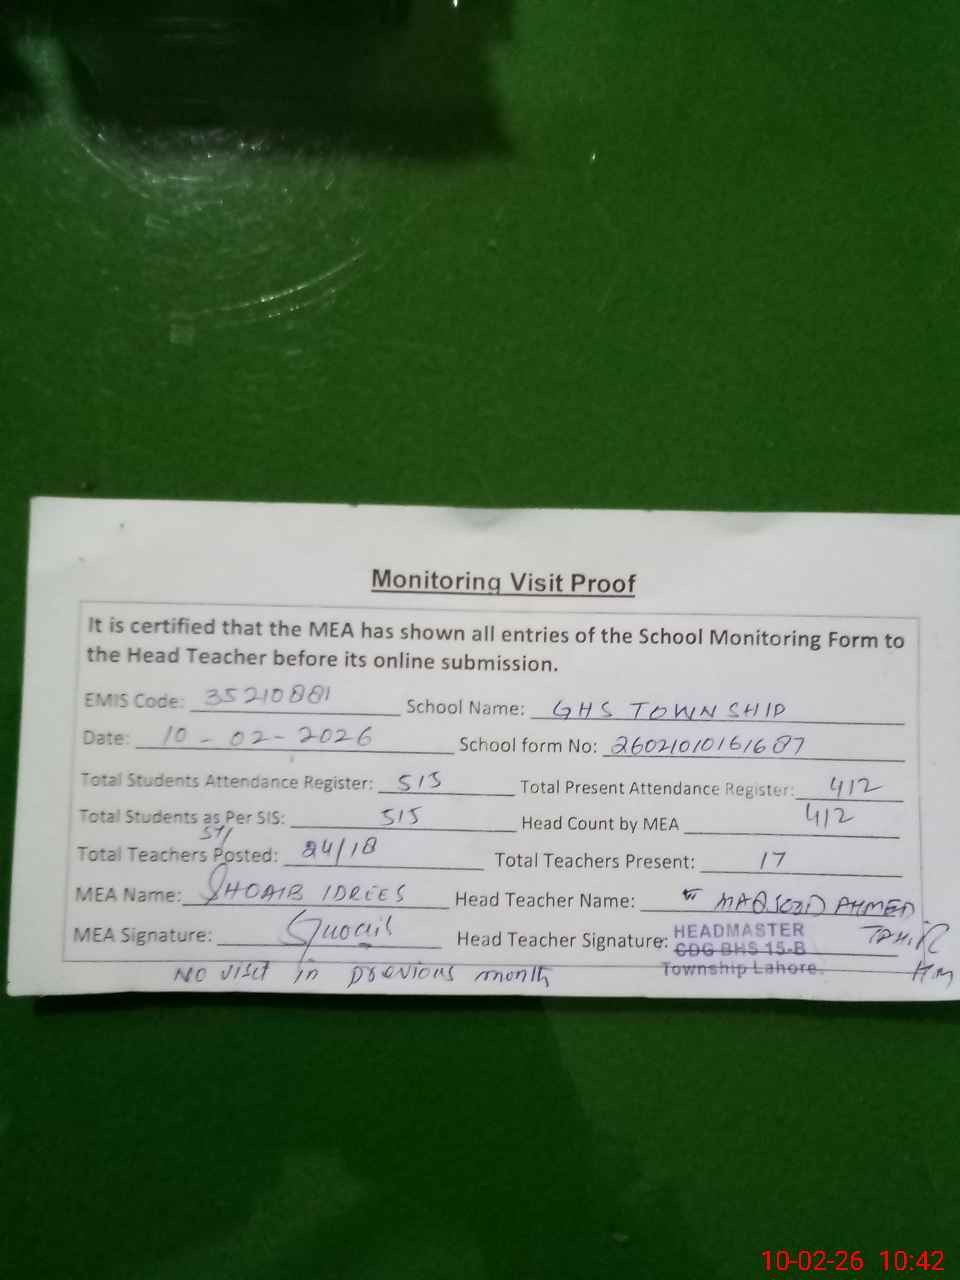 Monitoring Visit Proof
It is certified that the MEA has shown all entries of the School Monitoring Form to
the Head Teacher before its online submission.
EMIS Code: 35210881 School Name: GHS TOWNSHIP
Date: 10-02-2026 School form No: 26021010161687
Total Students Attendance Register: 515 Total Present Attendance Register: 412
Total Students as Per SIS: 515 Head Count by MEA 412
Total Teachers Posted: 24/18 Total Teachers Present: 17
MEA Name: SHOAIB IDREES Head Teacher Name: MAQSOOD AHMED
TAHIR
MEA Signature: Shoaib Head Teacher Signature: HEADMASTER
CDG BHS 15-B
Township Lahore.
HM
NO visit in previous month
10-02-26 10:42